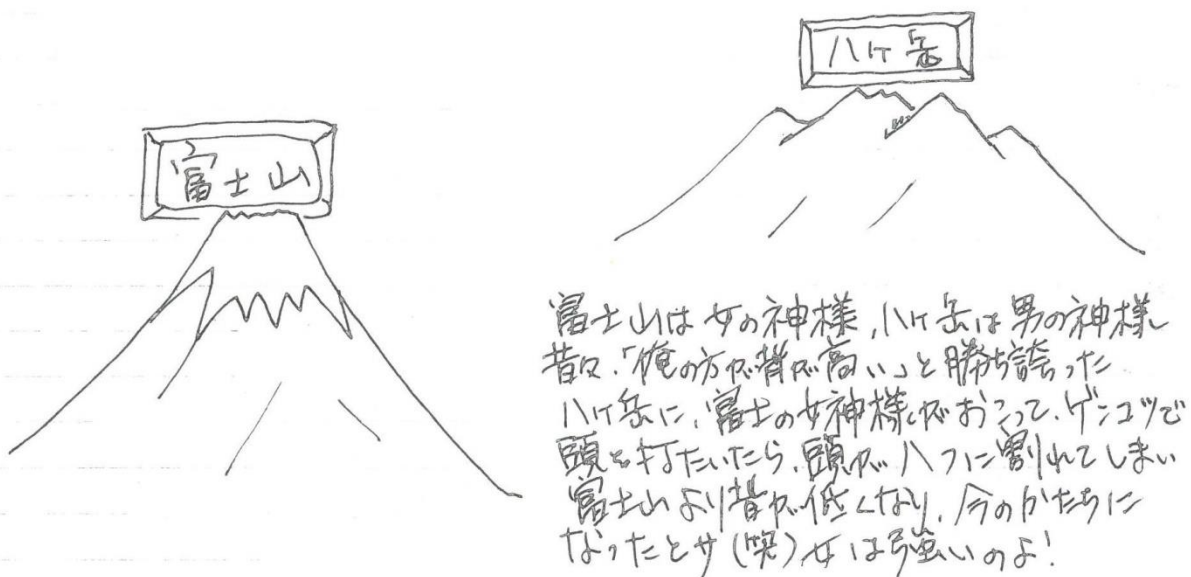 富士山
八ヶ岳
富士山は女の神様、八ヶ岳は男の神様
昔々、「俺の方が背が高い」と勝ち誇った
八ヶ岳に、富士の女神様がおこって、ゲンコツで
頭を打たいたら、頭が八つに割れてしまい
富士山より背が低くなり、今のかたちに
なったとサ(笑)女は強いのよ!